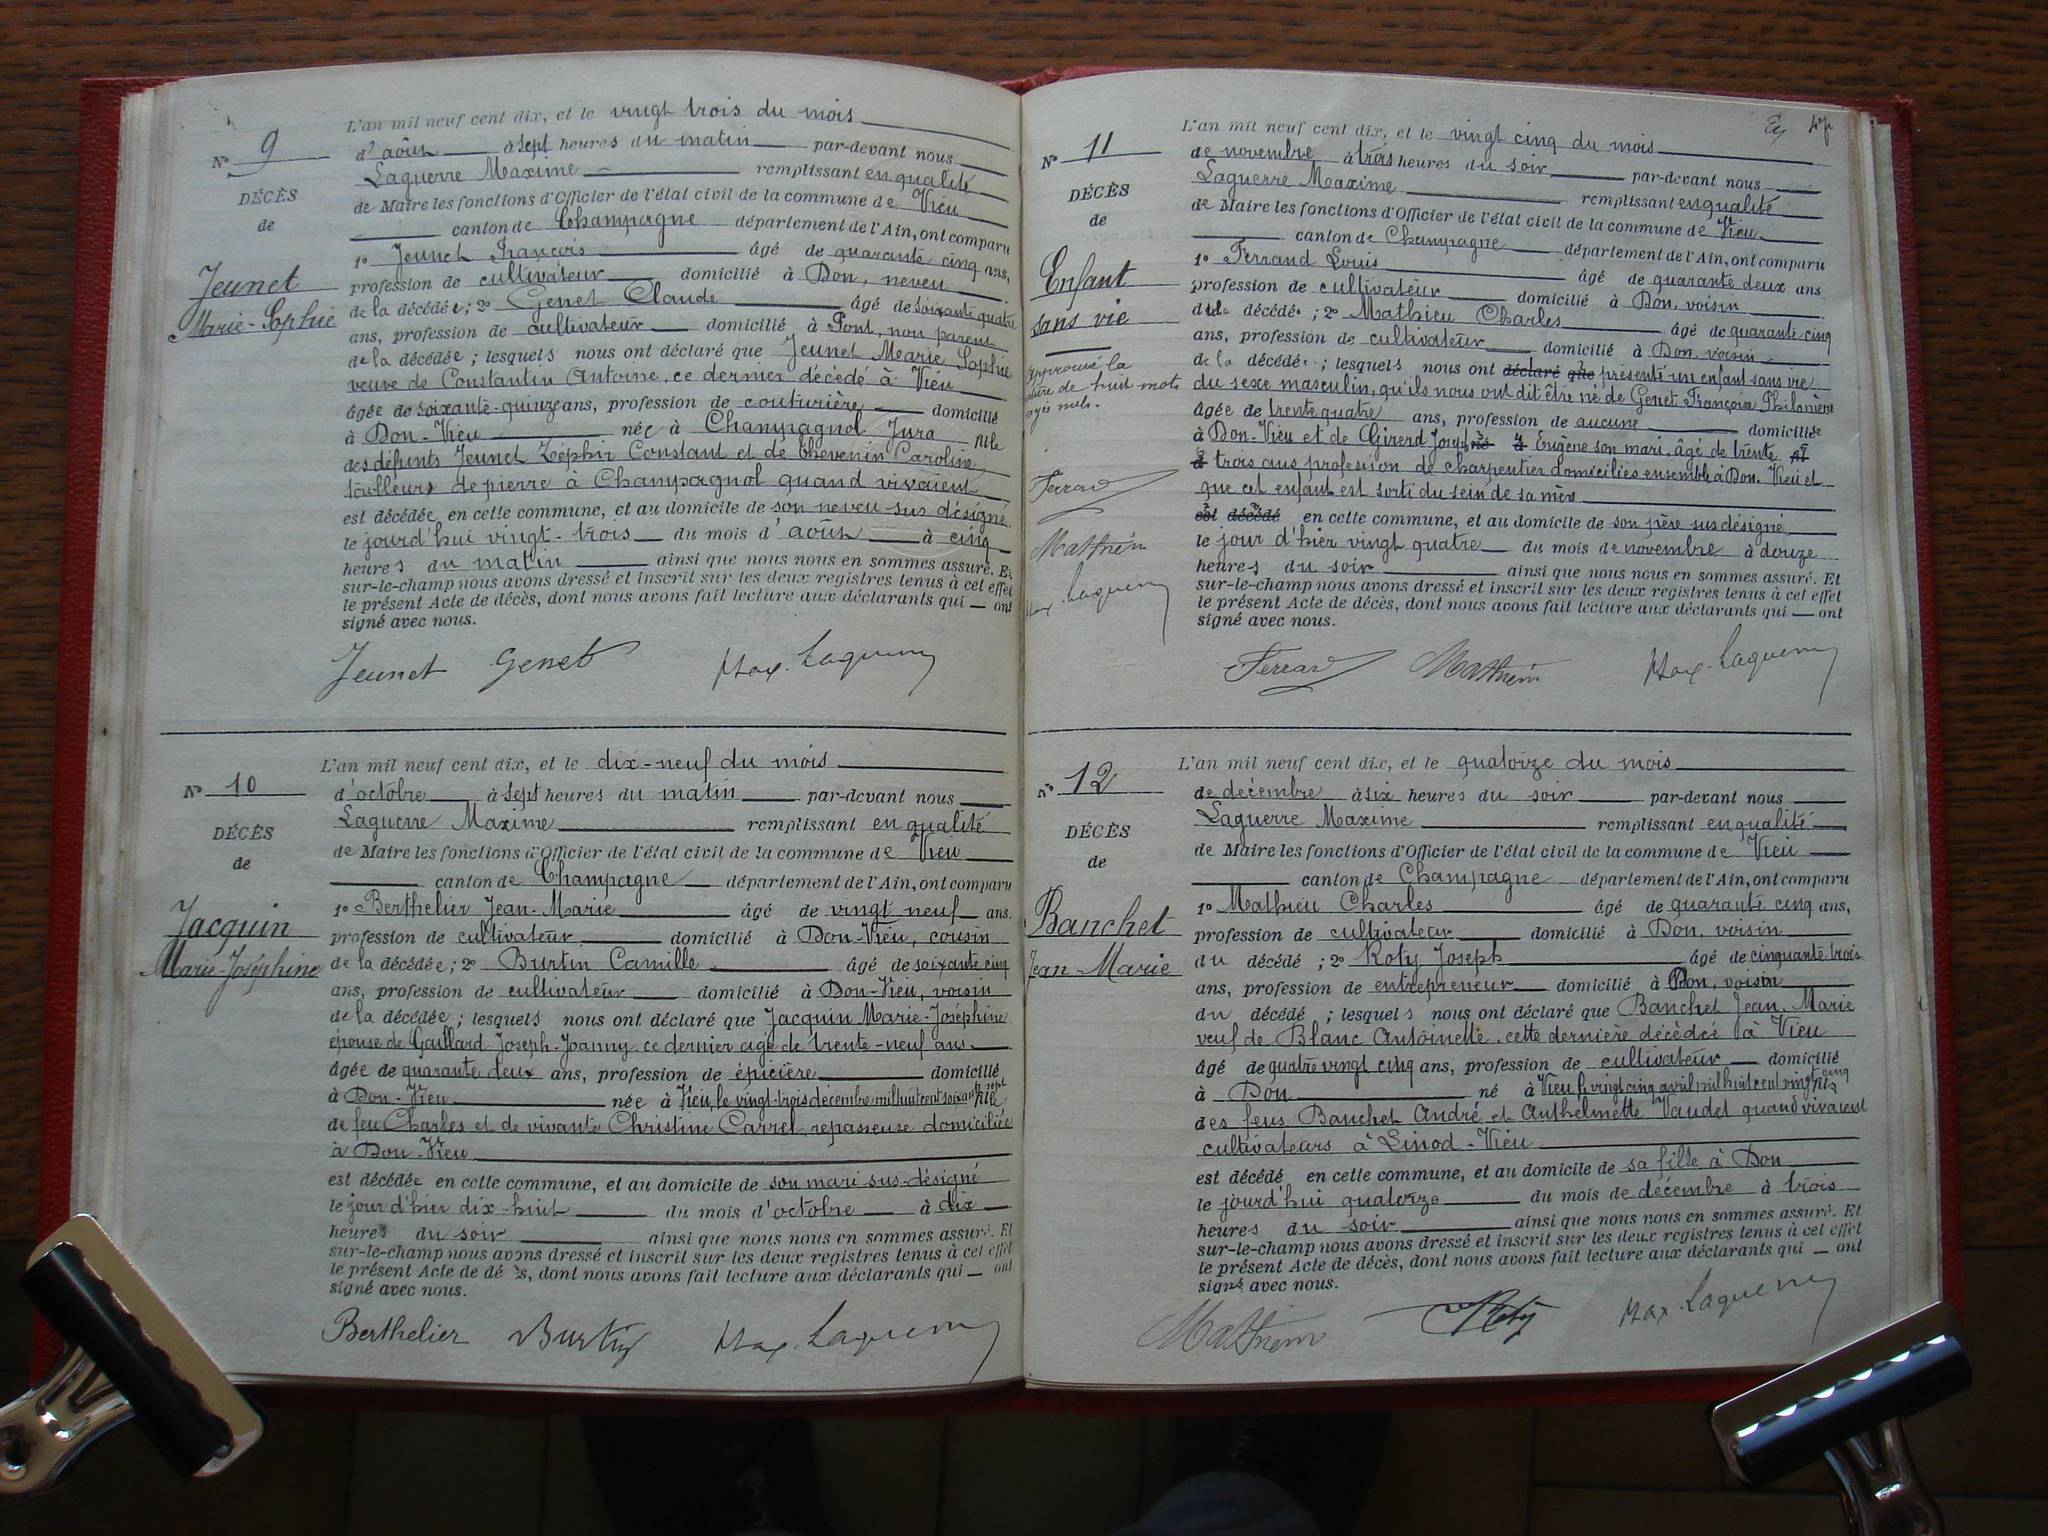 L'an mil neuf cent dix, et le vingt trois du mois
N° 9
d'août à sept heures du matin par-devant nous
Laguerre Maxime remplissant en qualité
DÉCÈS
de Maire les fonctions d'Officier de l'état civil de la commune de Vieu
de
canton de Champagne département de l'Ain, ont comparu
1° Jeunet François âgé de quarante cinq ans,
Jeunet
profession de cultivateur domicilié à Don, neveu
Marie-Sophie
de la décédée ; 2° Genet Claude âgé de soixante quatre
ans, profession de cultivateur domicilié à Pont, non parent
de la décédée ; lesquels nous ont déclaré que Jeunet Marie Sophie
veuve de Constantin Antoine, ce dernier décédé à Vieu
âgée de soixante-quinze ans, profession de couturière domicilié
à Don-Vieu née à Champagnol Jura fille
des défunts Jeunet Zéphir Constant et de Thevenin Caroline,
tailleurs de pierre à Champagnol quand vivaient
est décédée en cette commune, et au domicile de son neveu sus désigné
le jourd'hui vingt-trois du mois d'août à cinq
heures du matin ainsi que nous nous en sommes assuré. Et
sur-le-champ nous avons dressé et inscrit sur les deux registres tenus à cet effet
le présent Acte de décès, dont nous avons fait lecture aux déclarants qui — ont
signé avec nous.
Jeunet Genet Max. Laguerre
L'an mil neuf cent dix, et le dix-neuf du mois
N° 10
d'octobre à sept heures du matin par-devant nous
Laguerre Maxime remplissant en qualité
DÉCÈS
de Maire les fonctions d'Officier de l'état civil de la commune de Vieu
de
canton de Champagne département de l'Ain, ont comparu
1° Berthelier Jean-Marie âgé de vingt neuf ans.
Jacquin
profession de cultivateur domicilié à Don-Vieu, cousin
Marie-Joséphine
de la décédée ; 2° Burtin Camille âgé de soixante cinq
ans, profession de cultivateur domicilié à Don-Vieu, voisin
de la décédée ; lesquels nous ont déclaré que Jacquin Marie-Joséphine
épouse de Gaillard Joseph-Joanny, ce dernier âgé de trente-neuf ans.
âgée de quarante deux ans, profession de épicière domicilié
à Don-Vieu née à Vieu, le vingt-trois décembre mil huit cent soixante sept fille
de feu Charles et de vivante Christine Carrel, repasseuse domiciliée
à Don-Vieu
est décédée en cette commune, et au domicile de son mari sus-désigné
le jour d'hier dix-huit du mois d'octobre à dix
heures du soir ainsi que nous nous en sommes assuré. Et
sur-le-champ nous avons dressé et inscrit sur les deux registres tenus à cet effet
le présent Acte de décès, dont nous avons fait lecture aux déclarants qui — ont
signé avec nous.
Berthelier Burtin Max. Laguerre
L'an mil neuf cent dix, et le vingt cinq du mois
N° 11
de novembre à trois heures du soir par-devant nous
Laguerre Maxime remplissant en qualité
DÉCÈS
de Maire les fonctions d'Officier de l'état civil de la commune de Vieu
de
canton de Champagne département de l'Ain, ont comparu
1° Ferrand Louis âgé de quarante deux ans.
Enfant
profession de cultivateur domicilié à Don, voisin
sans vie
de la décédée ; 2° Mathieu Charles âgé de quarante-cinq
ans, profession de cultivateur domicilié à Don, voisin
de la décédée ; lesquels nous ont déclaré que présenté un enfant sans vie
du sexe masculin, qu'ils nous ont dit être né de Genet Françoise Philomène
âgée de trente quatre ans, profession de aucune domiciliée
à Don-Vieu et de Girerd Joseph né à Eugène son mari, âgé de trente
trois ans profession de charpentier domiciliés ensemble à Don-Vieu et
que cet enfant est sorti du sein de sa mère
est décédé en cette commune, et au domicile de son père sus désigné
le jour d'hier vingt quatre du mois de novembre à douze
heures du soir ainsi que nous nous en sommes assuré. Et
sur-le-champ nous avons dressé et inscrit sur les deux registres tenus à cet effet
le présent Acte de décès, dont nous avons fait lecture aux déclarants qui — ont
signé avec nous.
Approuvé la
rature de huit mots
rayés nuls.
Ferrand
Mathieu
Max. Laguerre
Ferrand Mathieu Max. Laguerre
L'an mil neuf cent dix, et le quatorze du mois
N° 12
de décembre à six heures du soir par-devant nous
Laguerre Maxime remplissant en qualité
DÉCÈS
de Maire les fonctions d'Officier de l'état civil de la commune de Vieu
de
canton de Champagne département de l'Ain, ont comparu
1° Mathieu Charles âgé de quarante cinq ans,
Banchet
profession de cultivateur domicilié à Don, voisin
Jean-Marie
du décédé ; 2° Roty Joseph âgé de cinquante-trois
ans, profession de entrepreneur domicilié à Don, voisin
du décédé ; lesquels nous ont déclaré que Banchet Jean-Marie
veuf de Blanc Antoinette, cette dernière décédée à Vieu
âgé de quatre vingt cinq ans, profession de cultivateur domicilié
à Don né à Vieu le vingt cinq avril mil huit cent vingt cinq fils
des feus Banchet André et Anthelmette Vaudet quand vivaient
cultivateurs à Linod-Vieu
est décédé en cette commune, et au domicile de sa fille à Don
le jourd'hui quatorze du mois de décembre à trois
heures du soir ainsi que nous nous en sommes assuré. Et
sur-le-champ nous avons dressé et inscrit sur les deux registres tenus à cet effet
le présent Acte de décès, dont nous avons fait lecture aux déclarants qui — ont
signé avec nous.
Mathieu Roty Max. Laguerre